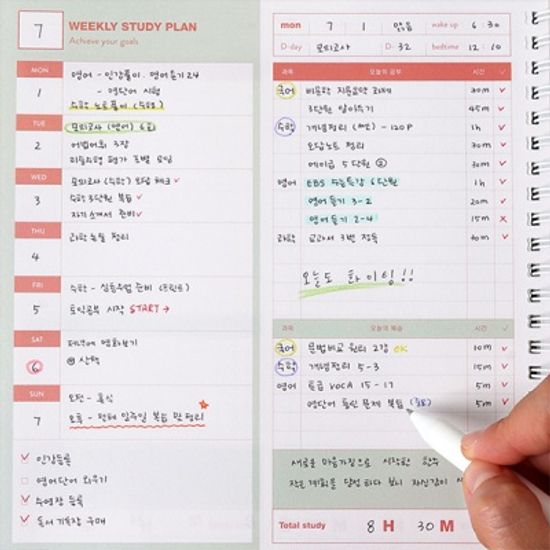 7 WEEKLY STUDY PLAN
Achieve your goals
MON
1
영어 - 인강풀이, 영어듣기 24
- 영단어 시험
수학 노트풀이 (수특)
TUE
2
모의고사 (영어) 6회
어법어휘 3장
WED
3
모의고사 (수학) 오답 체크 ✓
수학 3단원 복습 ✓
자기소개서 준비 ✓
THU
4
과학 노트 정리
FRI
5
수학 - 심화수업 준비 (프린트)
토익공부 시작 START →
SAT
6
산책
SUN
7
오전 - 휴식
오후 - 전체 일주일 복습 및 정리
✓ 인강등록
영어단어 외우기
✓ 수영장 등록
✓ 독서기록장 구매
mon 7 1 맑음 wake up 6 : 30
D-day 모의고사 D- 32 bedtime 12 : 10
과목 오늘의 공부 시간 ✓
국어 비문학 지문요약 과제 30m ✓
3단원 알아두기 45m ✓
수학 개념정리 - 120P 1h ✓
오답노트 정리 30m ✓
5단원 30m ✓
영어 EBS 수능특강 6단원 1h ✓
영어듣기 3-2 20m ✓
영어듣기 2-4 15m ✗
과학 교과서 3번 정독 ✓
오늘도 화이팅!!
과목 오늘의 복습 시간 ✓
국어 문법비교 원리 2강 OK 10m ✓
수학 개념정리 5-3 15m ✓
영어 토클 VOCA 15-17 5m ✓
영단어 틀린 문제 복습 5m ✓
새로운 마음가짐으로 시작한 한주
작은 계획을 달성하다 보니 자신감이
Total study 8 H 30 M